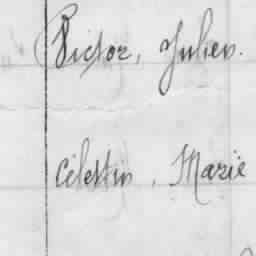 Victor, Julien.
Célestin, Marie